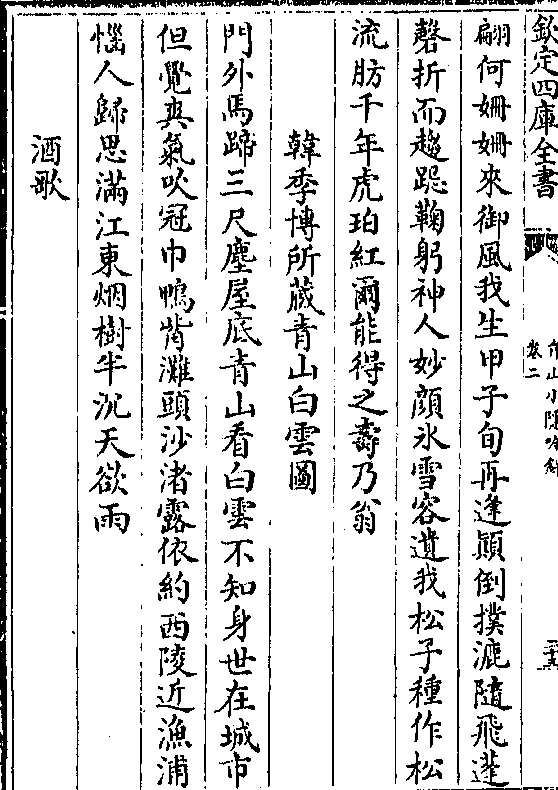 欽定四庫全書
卷二
翩何姍姍來御風我生甲子旬再逢顛倒撲漉隨飛蓬
磬折而趨跽鞠躬神人妙顔氷雪容遺我松子種作松
流肪千年虎珀紅爾能得之壽乃翁
韓季博所藏青山白雲圖
門外馬蹄三尺塵屋底青山看白雲不知身世在城市
但覺爽氣吹冠巾鴨觜灘頭沙渚露依約西陵近漁浦
惱人歸思滿江東烟樹半沉天欲雨
酒歌